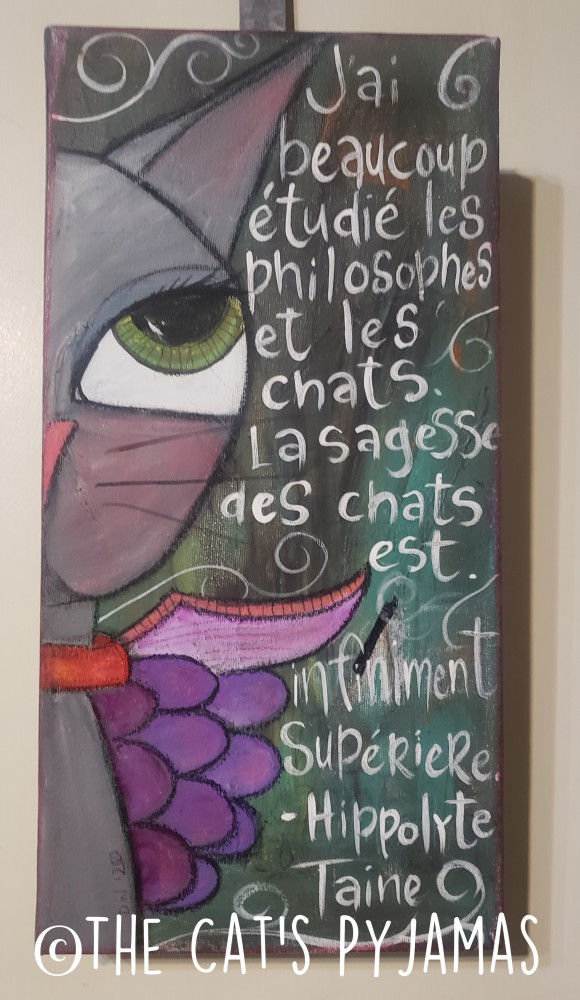 J'ai
beaucoup
étudié les
philosophes
et les
chats.
La sagesse
des chats
est.
infiniment
Supériere.
- Hippolyte
Taine
©THE CAT'S PYJAMAS